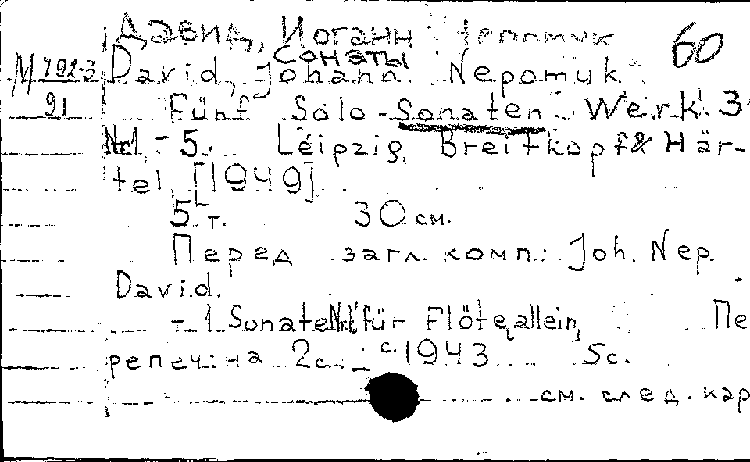 Давид, Иоганн Непомук 60
Сонаты
М 792-3
91
David, Johann Nepomuk
Fünf Solo-Sonaten. Werk 3
Nr1.-5. Leipzig, Breitkopf & Här-
tel, [1949]
5 т. 30 см.
Перед загл. комп.: Joh. Nep.
David.
- 1. Sonate Nr1 für Flöte allein, Пе
репеч. на 2с.: c 1943 5с.
см. след. кар